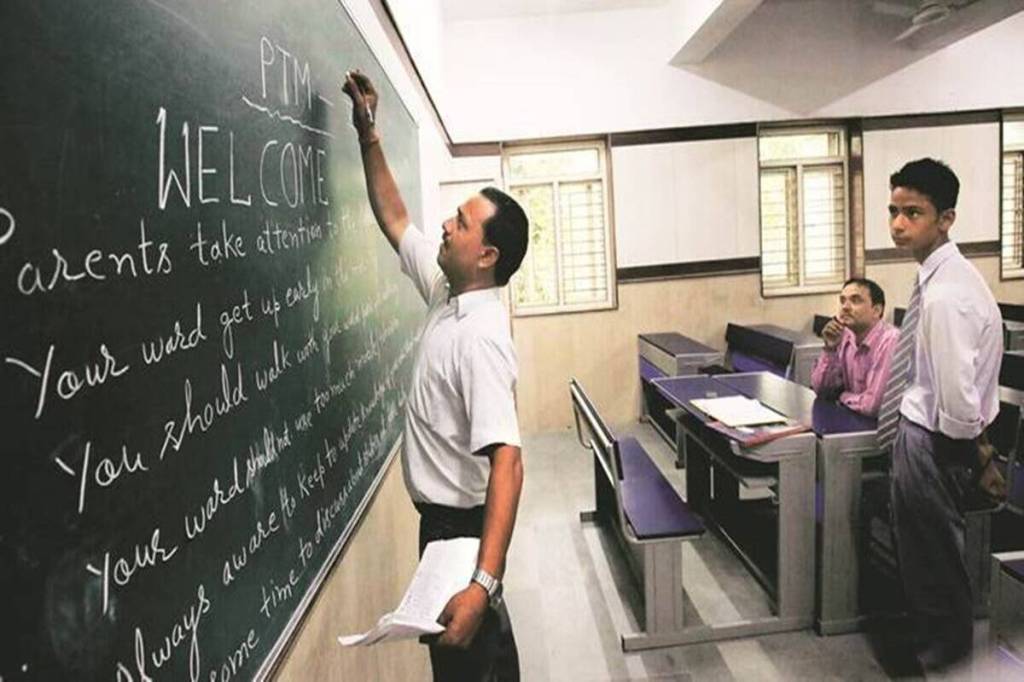 PTM -
WELCOME
Parents take attention to the
Your ward get up early in the
You should walk with your ward
Your ward should not use too much
Always aware to keep to update
some time to discuss about